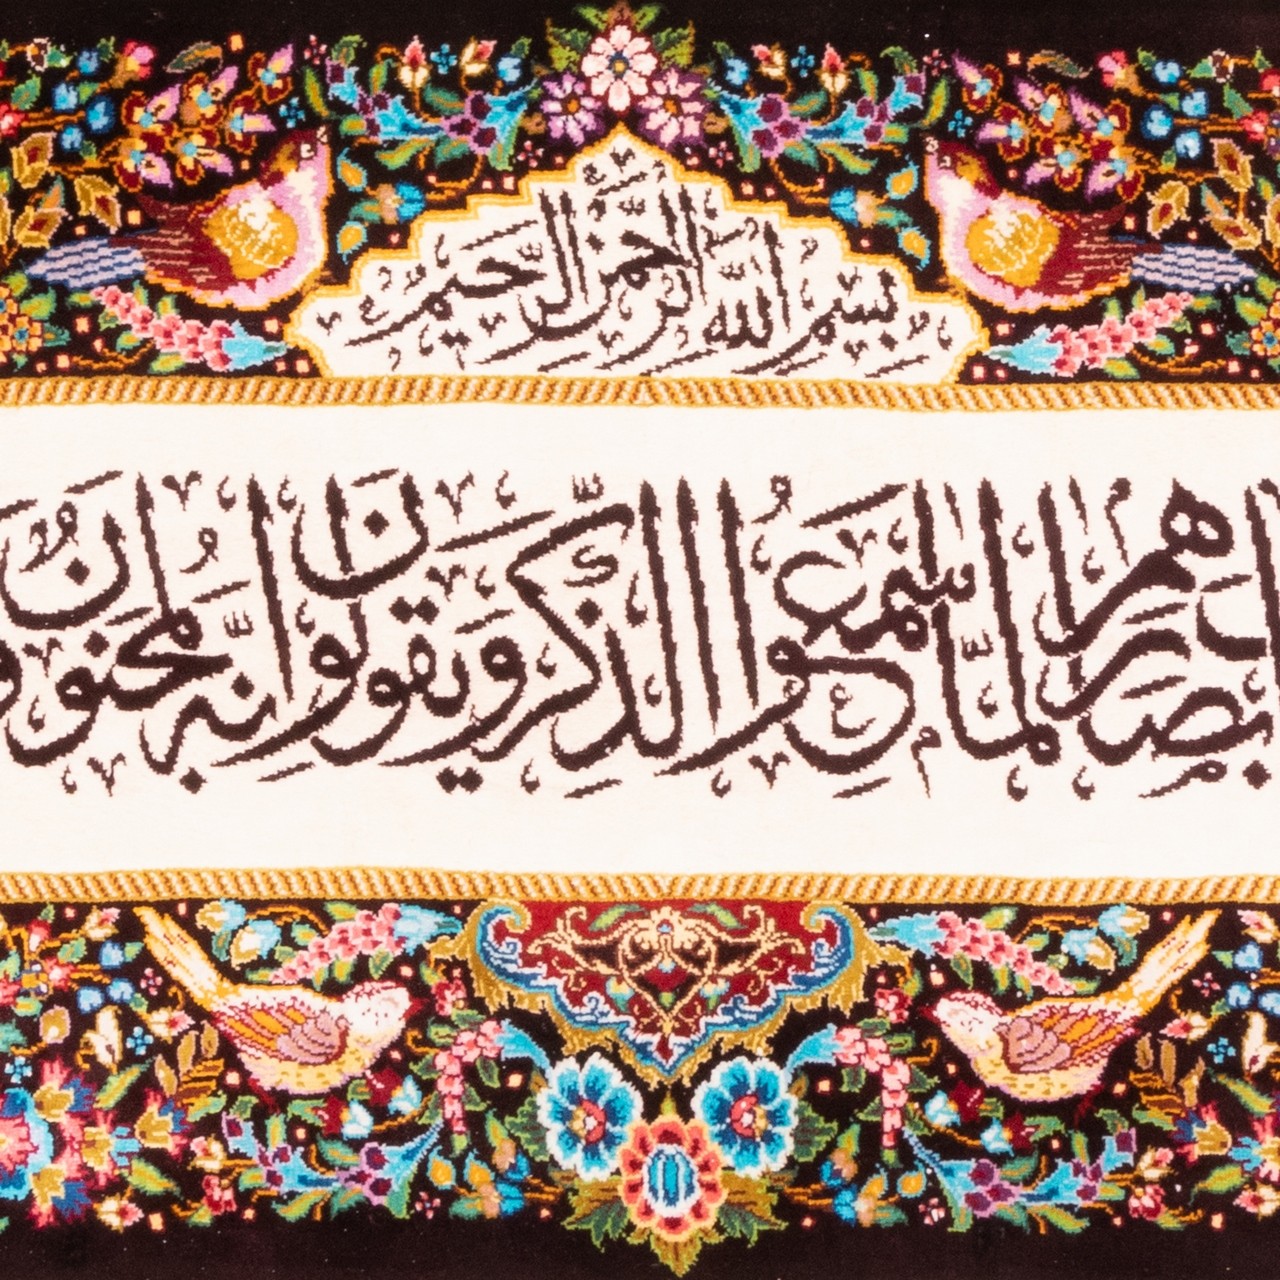 بِسْمِ اللَّهِ الرَّحْمَٰنِ الرَّحِيمِ
بِأَبْصَارِهِمْ لَمَّا سَمِعُوا الذِّكْرَ وَيَقُولُونَ إِنَّهُ لَمَجْنُونٌ